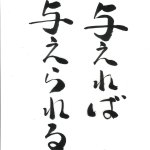 与えれば
与えられる